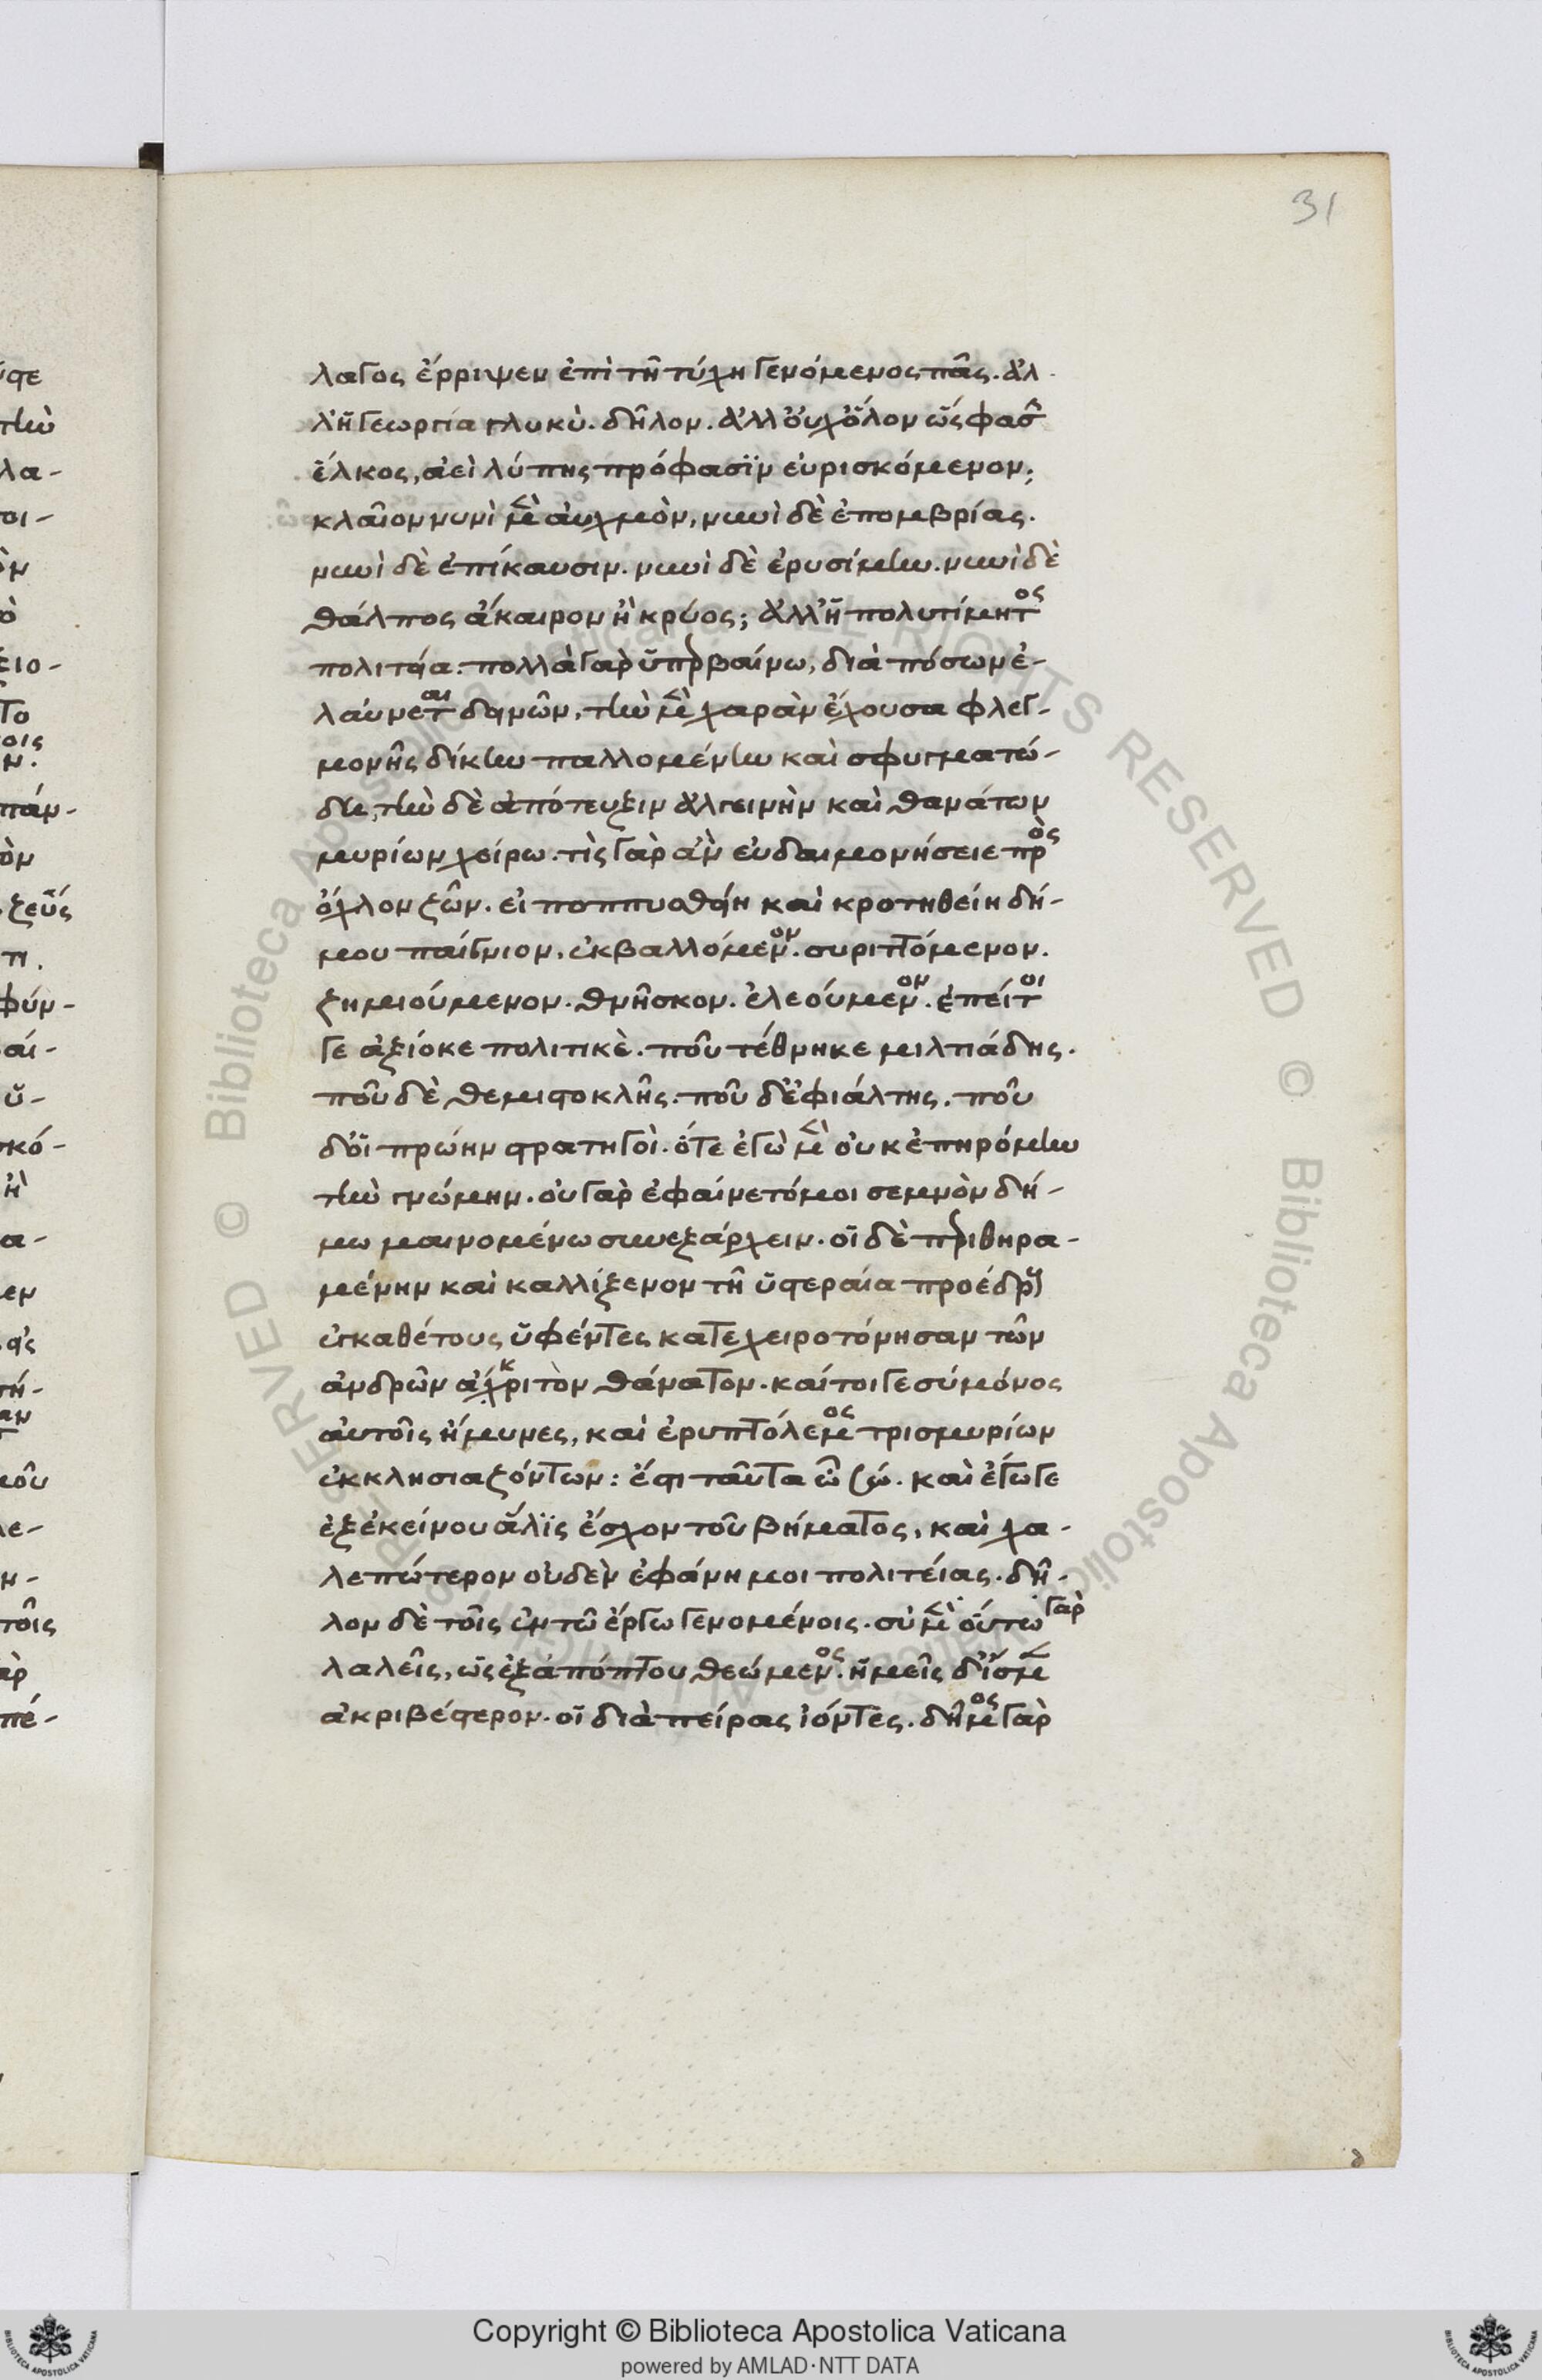 31
λαγος ἔρριψεν ἐπὶ τῆ τύχη γενόμενος πᾶς. ἀλ
λ' ἡ γεωργία γλυκὺ. δῆλον. ἀλλ' οὐχ ὅλον ὥς φασ
ἕλκος, ἀεὶ λύπης πρόφασϊν εὑρισκόμενον;
κλαῖον νυνὶ μὲν αὐχμὸν, νυνὶ δὲ ἐπομβρίας.
νυνὶ δὲ ἐπίκαυσιν. νυνὶ δὲ ἐρυσίμην. νυνὶ δὲ
θάλπος ἄκαιρον ἢ κρύος; ἀλλ' ἡ πολυτίμητος
πολιτεία. πολλὰ γὰρ ὑπερβαίνω, διὰ πόσων ἐ-
λαύνεται δεινῶν, τὴν μὲν χαρὰν ἔχουσα φλεγ-
μονῆς δίκην παλλομένην καὶ σφυγματώ-
δη, τὴν δὲ ἀπότευξιν ἀλγεινὴν καὶ θανάτων
μυρίων χείρω. τὶς γὰρ ἂν εὐδαιμονήσειε πρὸς
ὄχλον ζῶν. εἰ ποππυσθείη καὶ κροτηθείη δή-
μου παίγνιον, ἐκβαλλόμενον. συριττόμενον.
ζημιούμενον. θνῆσκον. ἐλεούμενον. ἐπείτοι
γε ἀξίοκε πολιτικὲ. ποῦ τέθνηκε μιλτιάδης.
ποῦ δὲ θεμιστοκλῆς. ποῦ δ' ἐφιάλτης. ποῦ
δ' οἱ πρώην στρατηγοὶ. ὅτε ἐγὼ μὲν οὐκ ἐπηρόμην
τὴν γνώμην. οὐ γὰρ ἐφαίνετό μοι σεμνὸν δή-
μω μαινομένω συνεξάρχειν. οἱ δὲ περὶ θηρα-
μένην καὶ καλλίξενον τῆ ὑστεραία προέδρους
ἐγκαθέτους ὑφέντες κατεχειροτόνησαν τῶν
ἀνδρῶν ἄχκριτον θάνατον. καίτοι γε σὺ μόνος
αὐτοῖς ἤμυνες, καὶ ἐρυπτόλεμος τρισμυρίων
ἐκκλησιαζόντων: ἔστι ταῦτα ὦ σώ. καὶ ἐγωγε
ἐξ ἐκείνου ἅλϊς ἔσχον τοῦ βήματος, καὶ χα-
λεπώτερον οὐδὲν ἐφάνη μοι πολιτείας. δῆ-
λον δὲ τοῖς ἐν τῶ ἔργω γενομένοις. σὺ μὲν γὰρ οὕτω
λαλεῖς, ὡς ἐξ ἀπόπτου θεώμενος. ἡμεῖς δ' ἴσμεν
ἀκριβέστερον. οἱ διὰ πείρας ἰόντες. δῆμος γὰρ
Copyright © Biblioteca Apostolica Vaticana
powered by AMLAD·NTT DATA